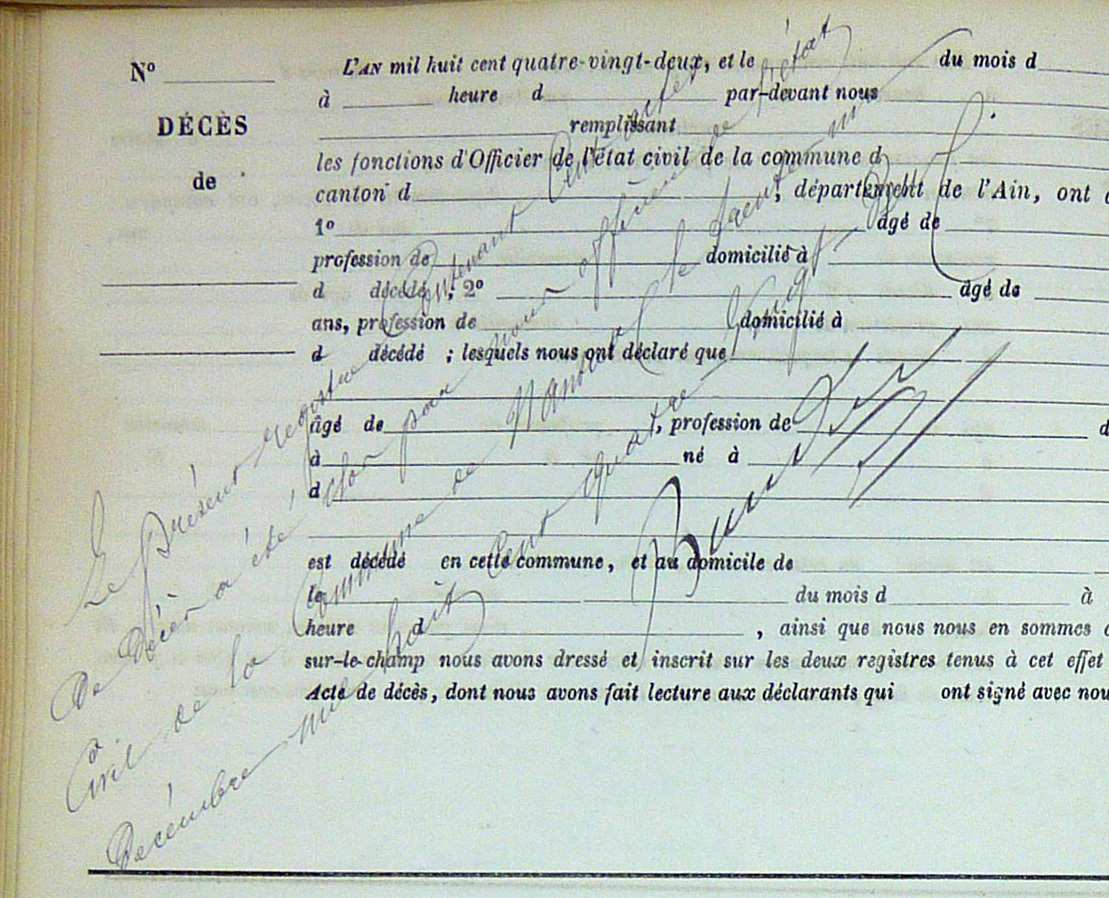 N°
DÉCÈS
de
L'AN mil huit cent quatre-vingt-deux, et le du mois d
à heure d par-devant nous
remplissant
les fonctions d'Officier de l'état civil de la commune d
canton d , département de l'Ain, ont
1° âgé de
profession de domicilié à
d décédé ; 2° âgé de
ans, profession de domicilié à
d décédé ; lesquels nous ont déclaré que
âgé de , profession de d
à né à
d
est décédé en cette commune, et au domicile de
le du mois d à
heure d , ainsi que nous nous en sommes
sur-le-champ nous avons dressé et inscrit sur les deux registres tenus à cet effet
Acte de décès, dont nous avons fait lecture aux déclarants qui ont signé avec nou
Le présent registre Contenant actes
de Décès a été clos par nous officier de l'état
Civil de la Commune de le trente un
Décembre mil huit Cent quatre Vingt